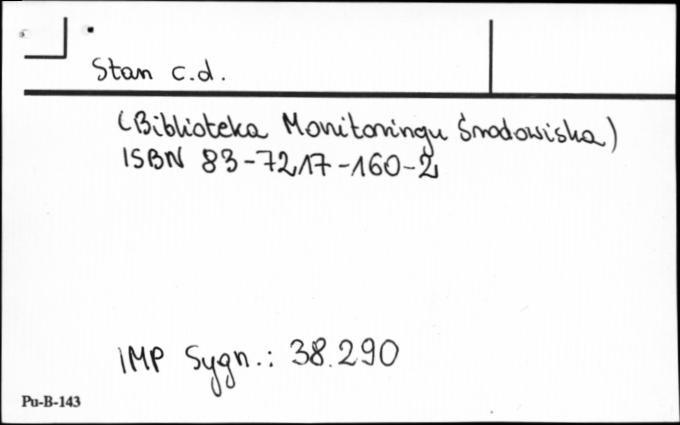 Stan c.d.
(Biblioteka Monitoringu Środowiska)
ISBN 83-7217-160-2
IMP Sygn.: 38.290
Pu-B-143